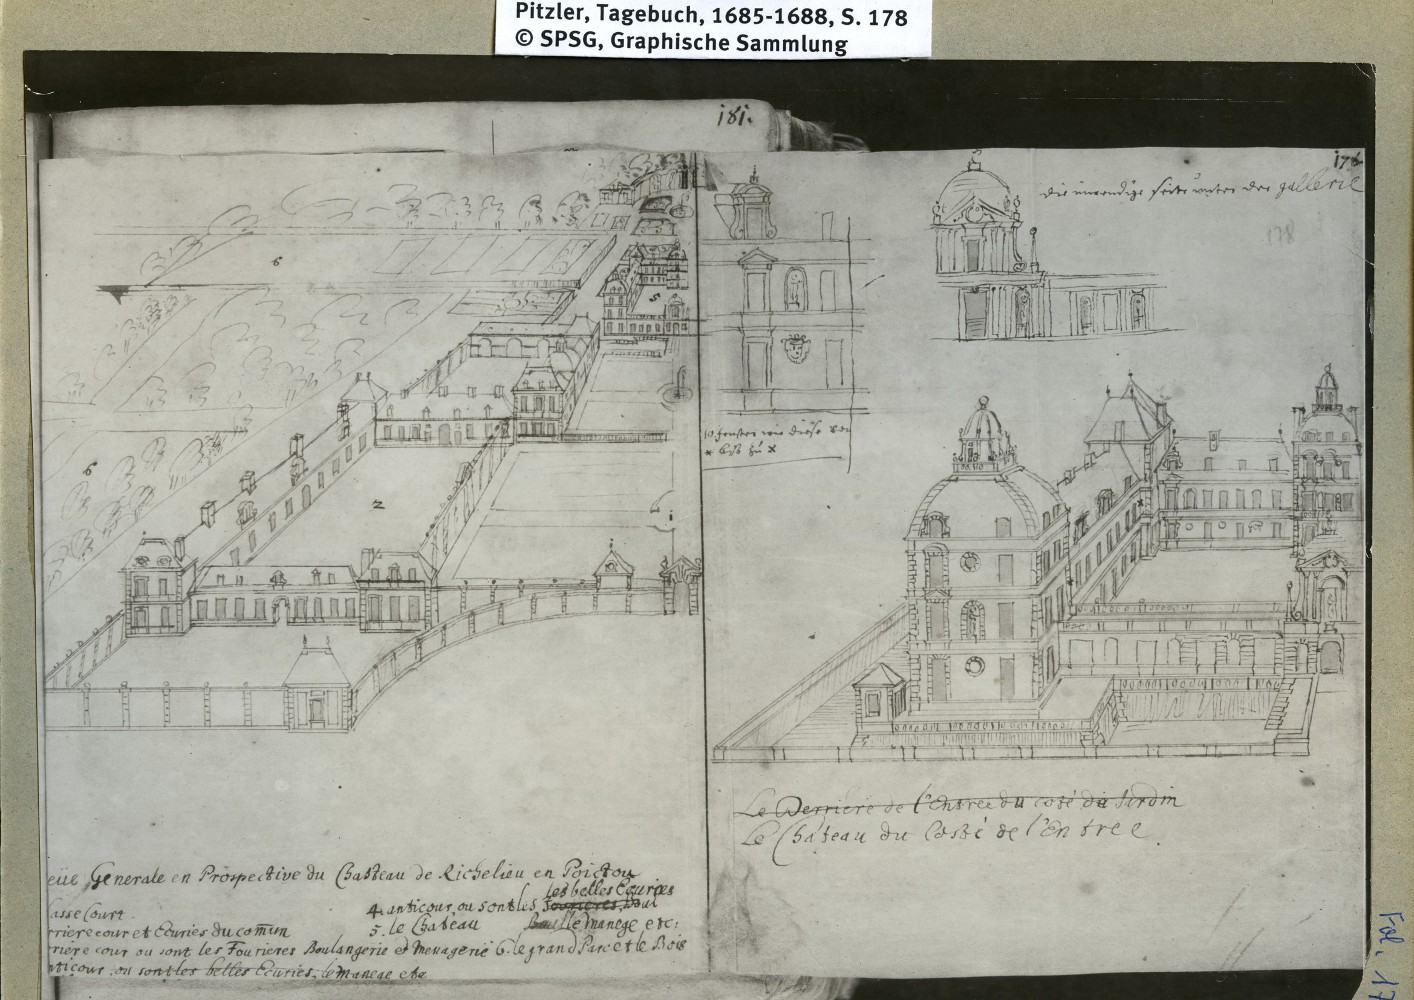 Pitzler, Tagebuch, 1685-1688, S. 178
© SPSG, Graphische Sammlung
181.
178
die inwendige seite unter der gallerie
178
6
5
6
2
10 fenster wie diese von
* biß zu *
Le Derriere de l'Entree du costé du Jardin
Le Chateau du Costé de l'Entree
eüe Generale en Prospective du Chasteau de Richelieu en Poictou
asse Court
4. anticour, ou sont les les belles Ecuries
rriere cour et Ecuries du com̄un
5. le Chateau le manege etc:
rriere cour ou sont les Fourieres Boulangerie et Menagerie 6. le grand Parc et le Bois
nticour, ou sont les belles Ecuries, le manege etc
Fol. 17